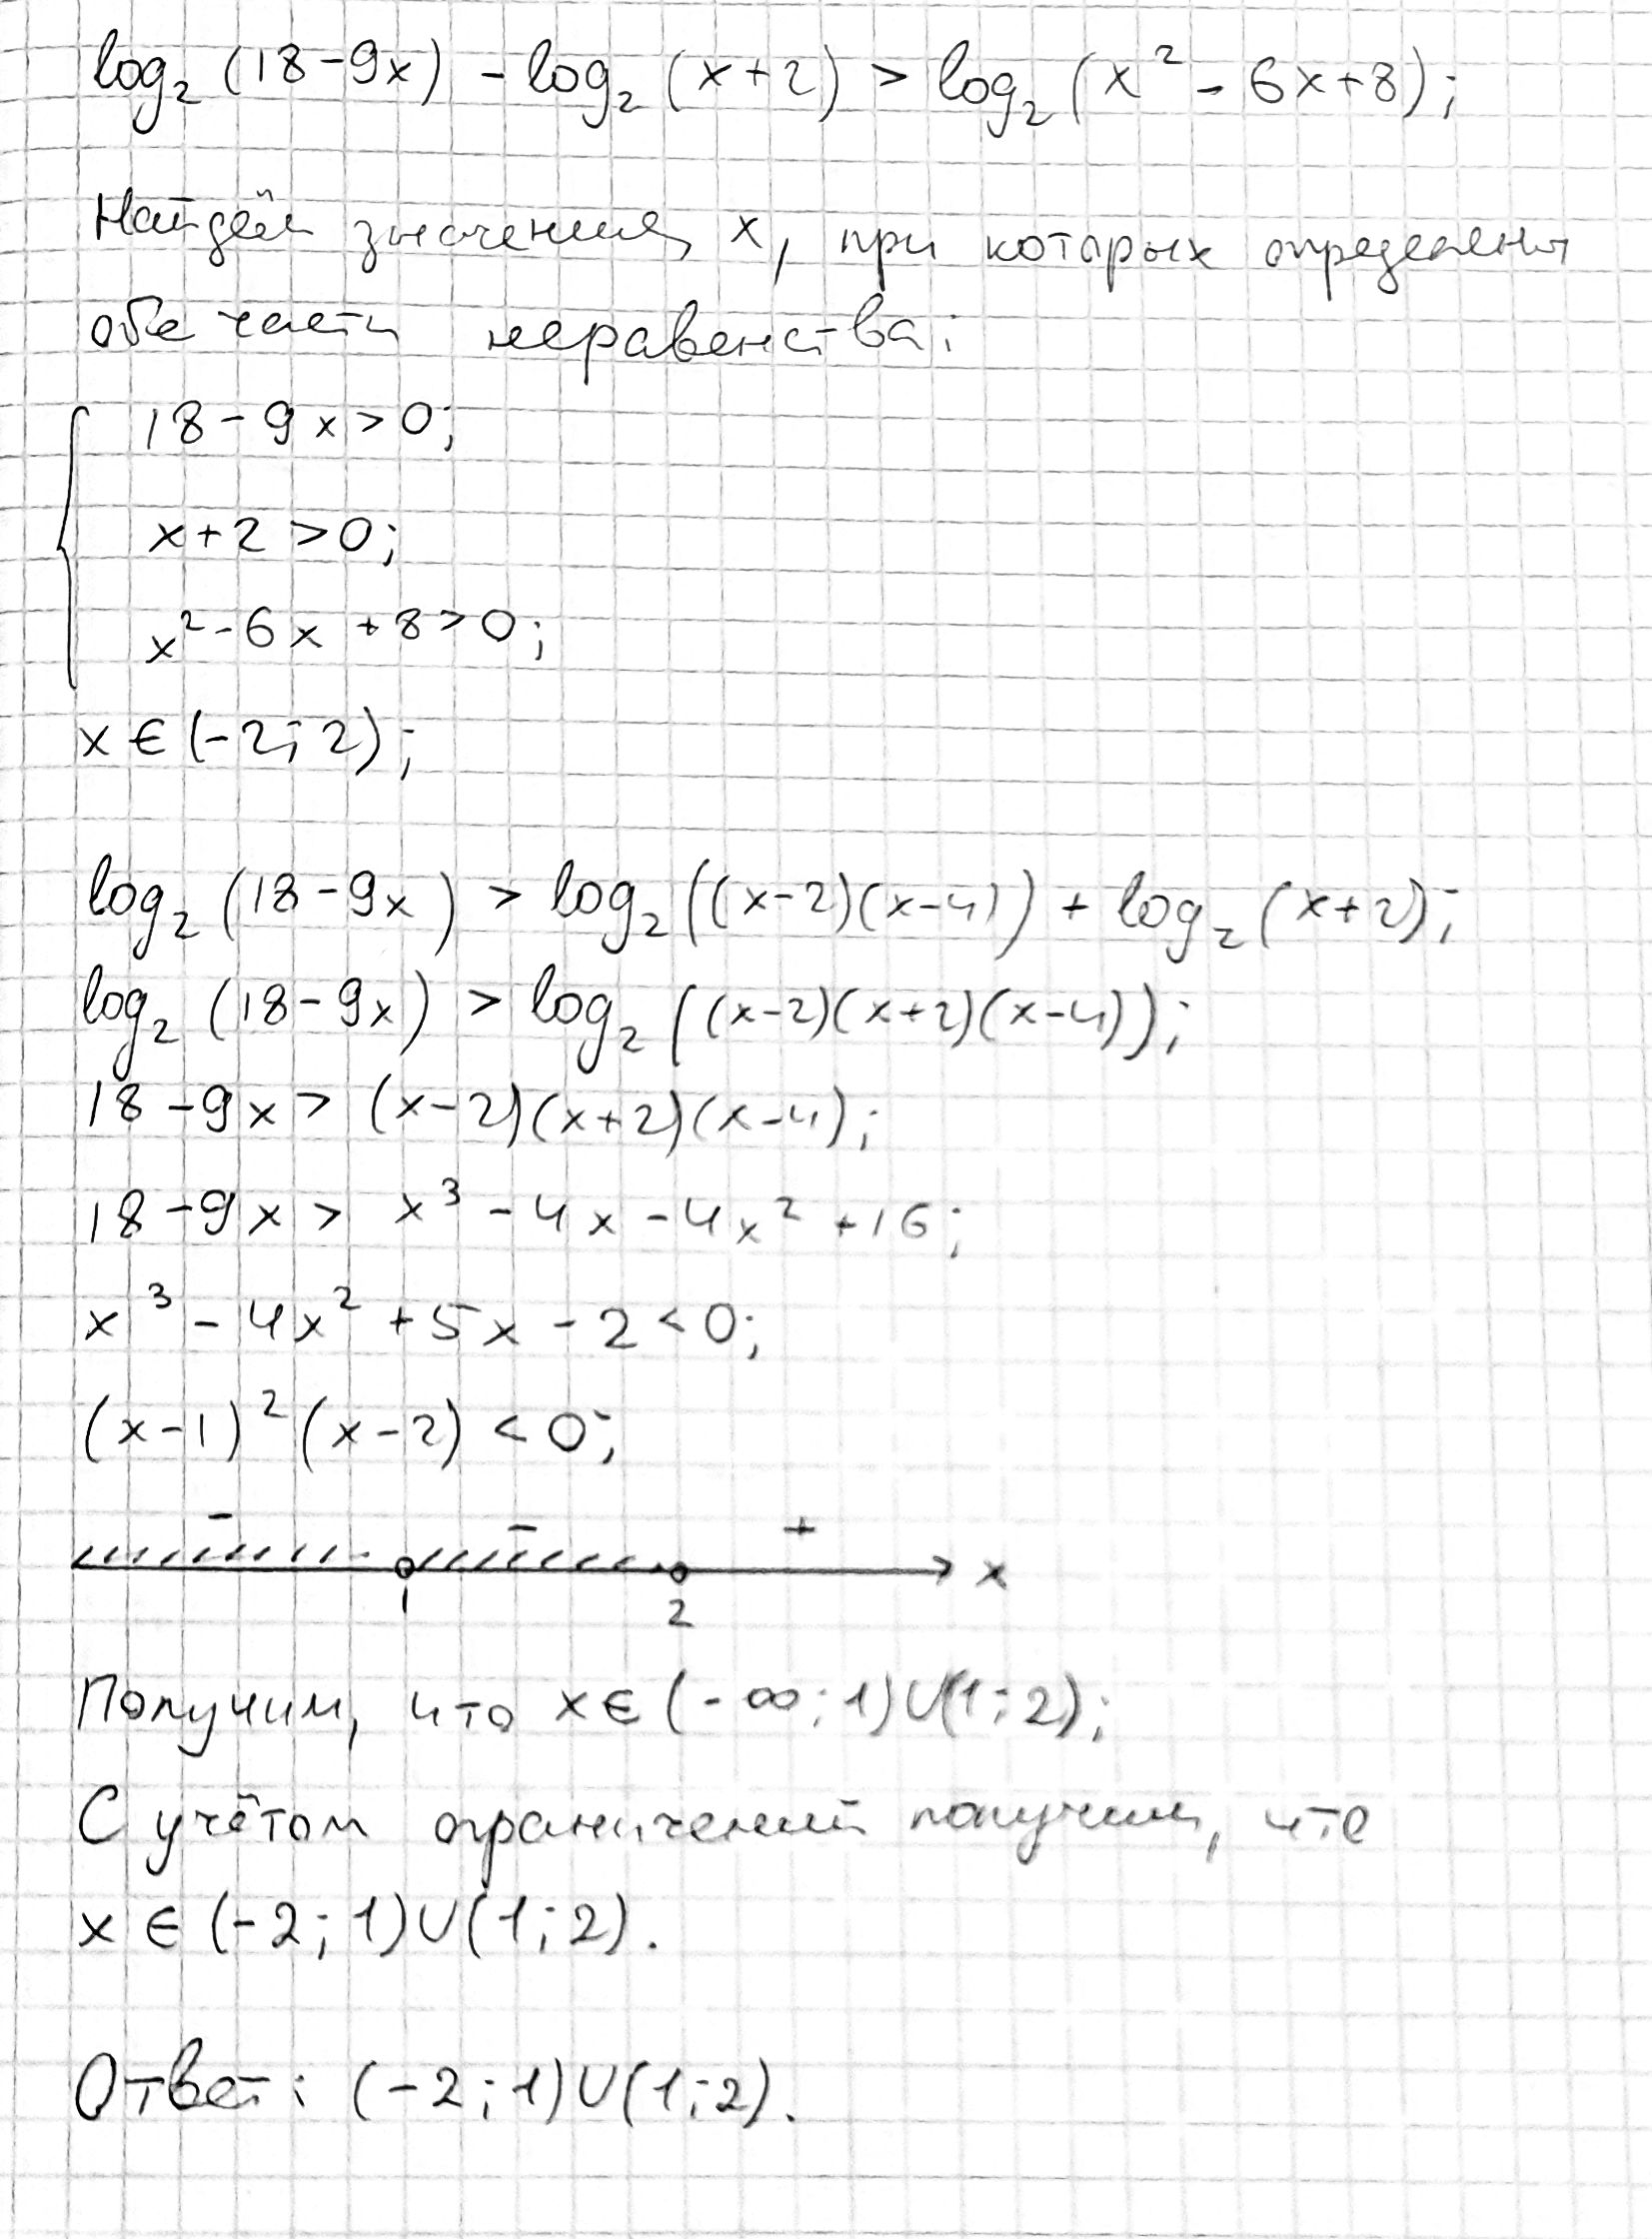 log₂(18-9x) - log₂(x+2) > log₂(x² - 6x+8);
Найдём значения x, при которых определены
обе части неравенства:
18-9x>0;
x+2>0;
x²-6x+8>0;
x∈(-2;2);
log₂(18-9x) > log₂((x-2)(x-4)) + log₂(x+2);
log₂(18-9x) > log₂((x-2)(x+2)(x-4));
18-9x > (x-2)(x+2)(x-4);
18-9x > x³-4x-4x²+16;
x³-4x²+5x-2<0;
(x-1)²(x-2)<0;
- - +
1 2 x
Получим, что x∈(-∞;1)∪(1;2);
С учётом ограничений получим, что
x∈(-2;1)∪(1;2).
Ответ: (-2;1)∪(1;2).